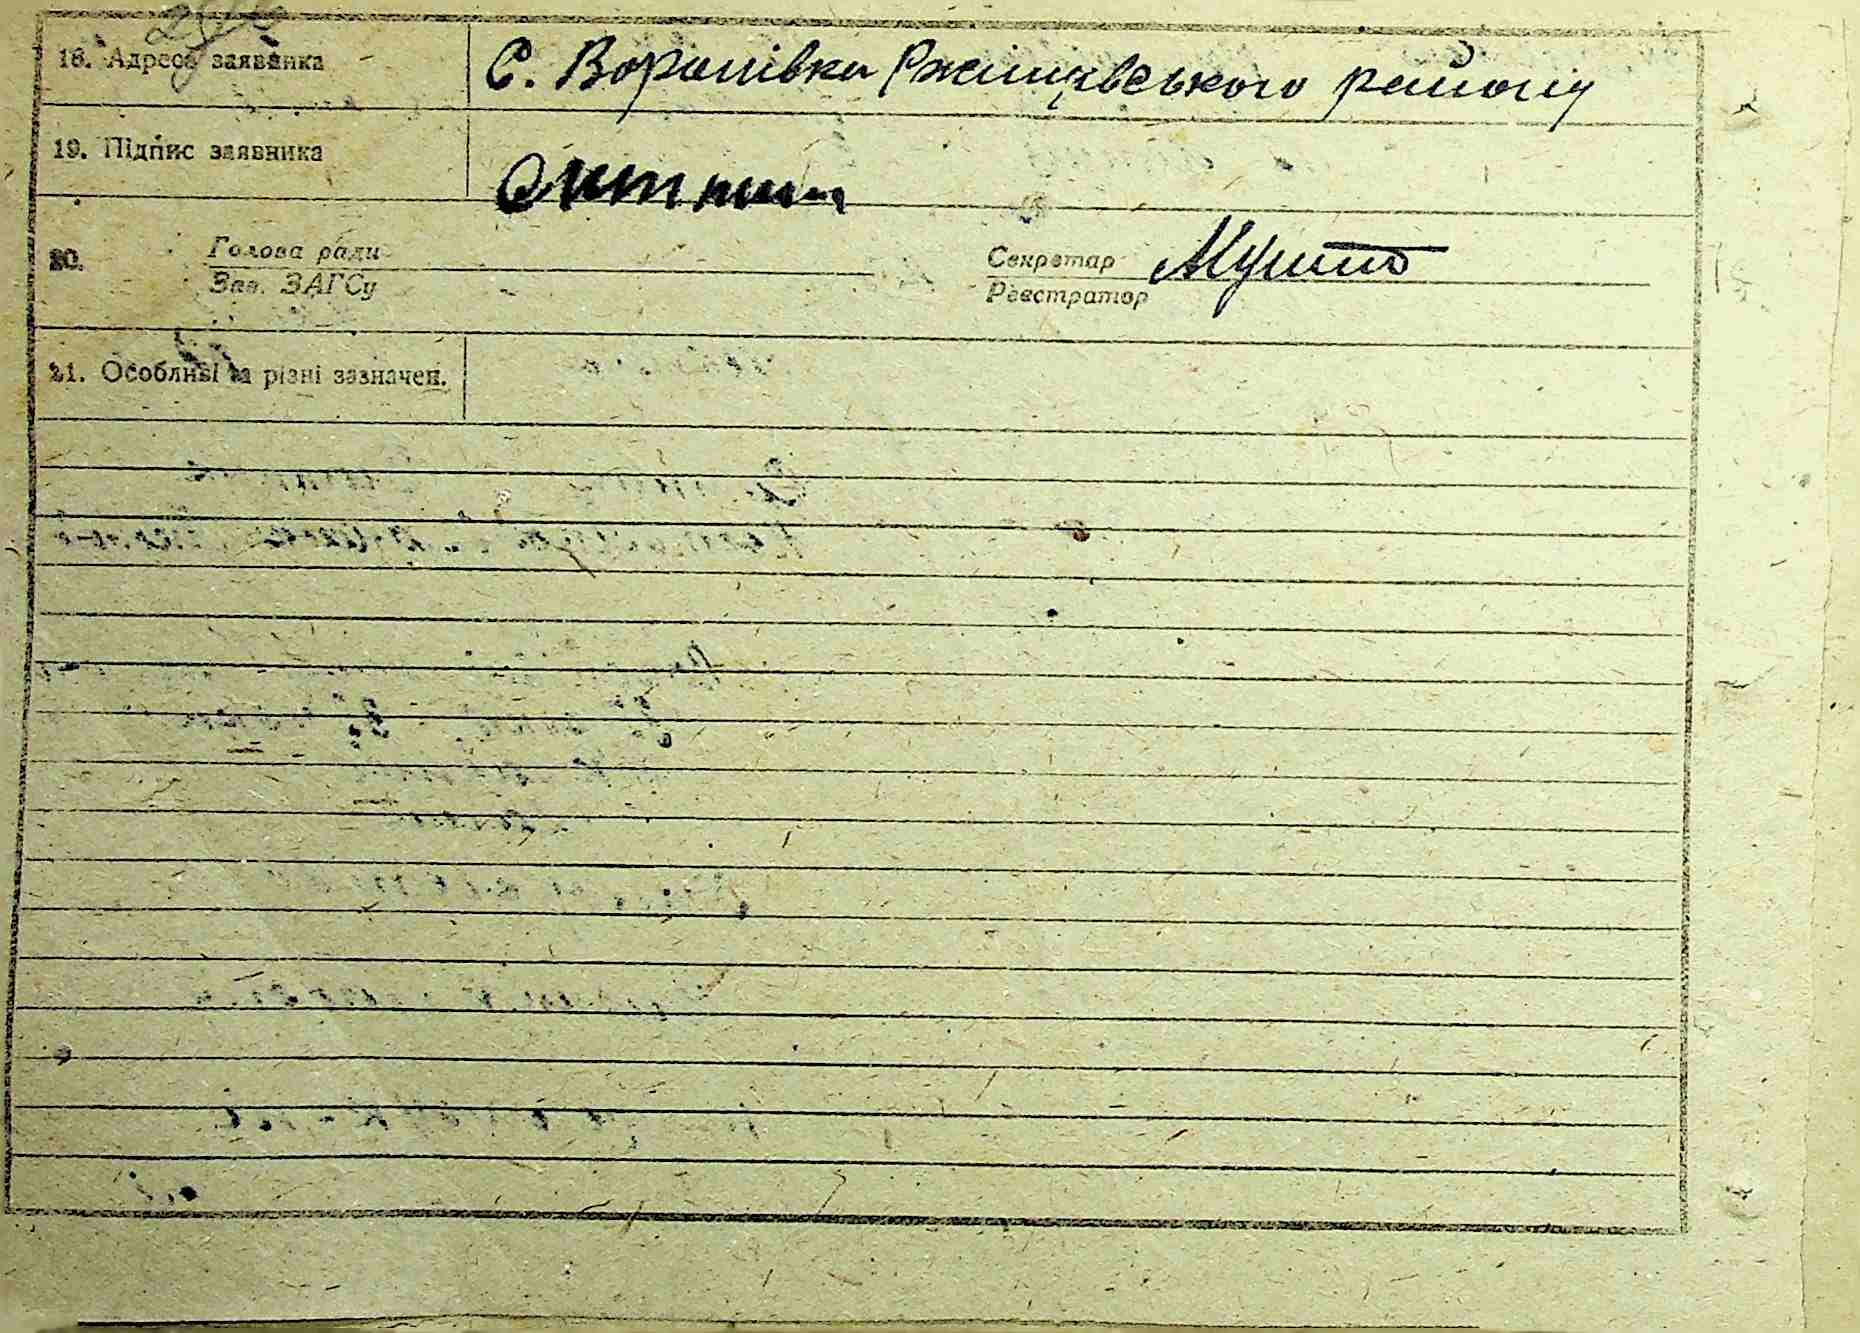 18. Адреса заявника С. Воронівка Ржищівського району
19. Підпис заявника
20. Голова ради Секретар
Зав. ЗАГСу Реєстратор
21. Особливі та різні зазначен.